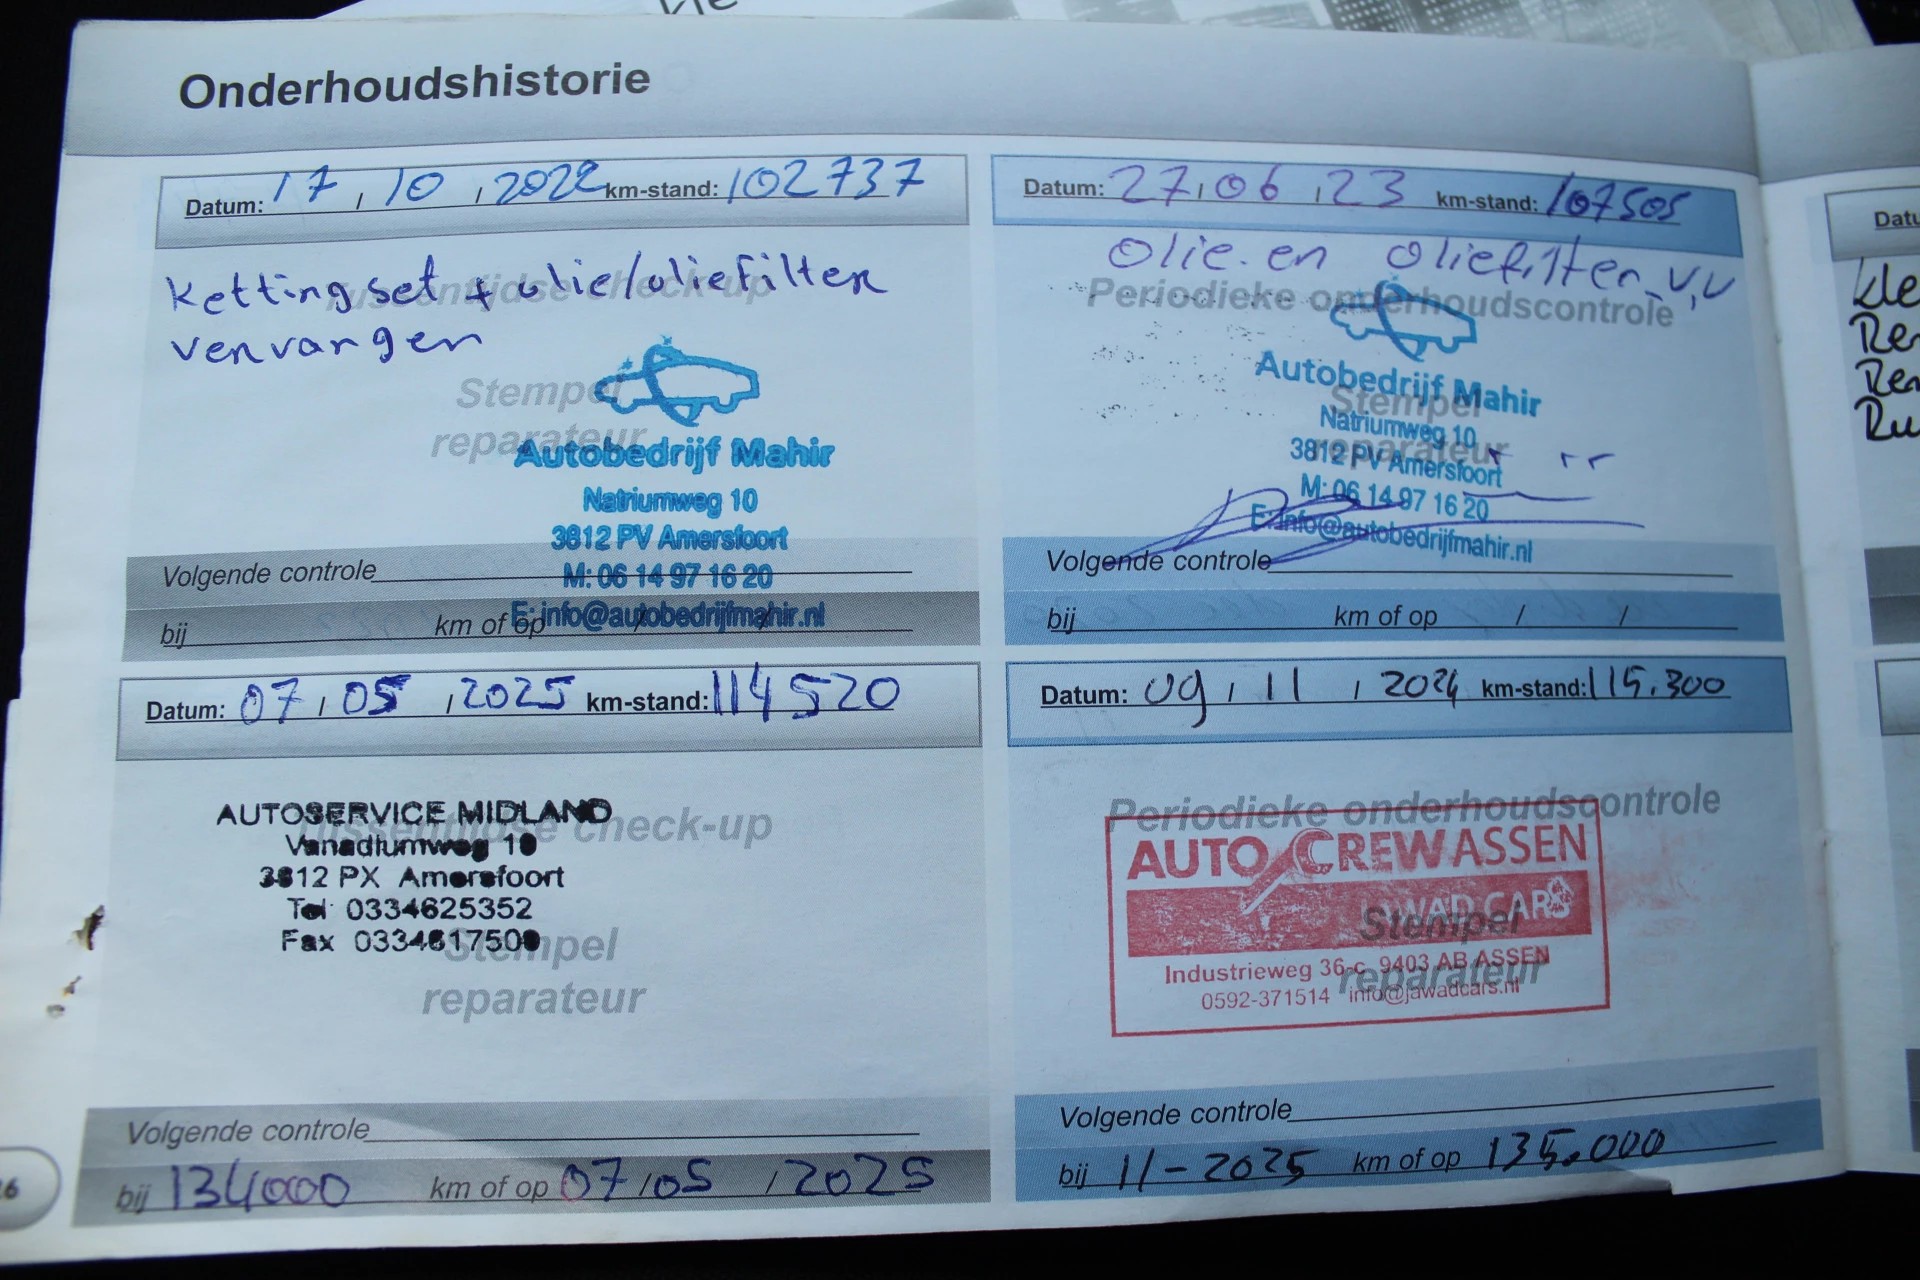 Onderhoudshistorie
Datum: 17 / 10 / 2022 km-stand: 102737
Kettingset + olie/oliefilter
vervangen
Tussentijdse check-up
Stempel
reparateur
Autobedrijf Mahir
Natriumweg 10
3812 PV Amersfoort
M: 06 14 97 16 20
E: info@autobedrijfmahir.nl
Volgende controle
bij km of op / /
Datum: 27 / 06 / 23 km-stand: 107505
Olie en oliefilter v,v
Periodieke onderhoudscontrole
Stempel
reparateur
Autobedrijf Mahir
Natriumweg 10
3812 PV Amersfoort
M: 06 14 97 16 20
E: info@autobedrijfmahir.nl
Volgende controle
bij km of op / /
Datum: 07 / 05 / 2025 km-stand: 114520
Tussentijdse check-up
AUTOSERVICE MIDLAND
Vanadiumweg 10
3812 PX Amersfoort
Tel 0334625352
Fax 0334617500
Stempel
reparateur
Volgende controle
bij 134000 km of op 07 / 05 / 2025
Datum: 09 / 11 / 2024 km-stand: 115.300
Periodieke onderhoudscontrole
AUTO CREW ASSEN
JAWAD CARS
Stempel
reparateur
Industrieweg 36-c 9403 AB ASSEN
0592-371514 info@jawadcars.nl
Volgende controle
bij 11-2025 km of op 135.000
Datu
kle
Ren
Ren
Ru